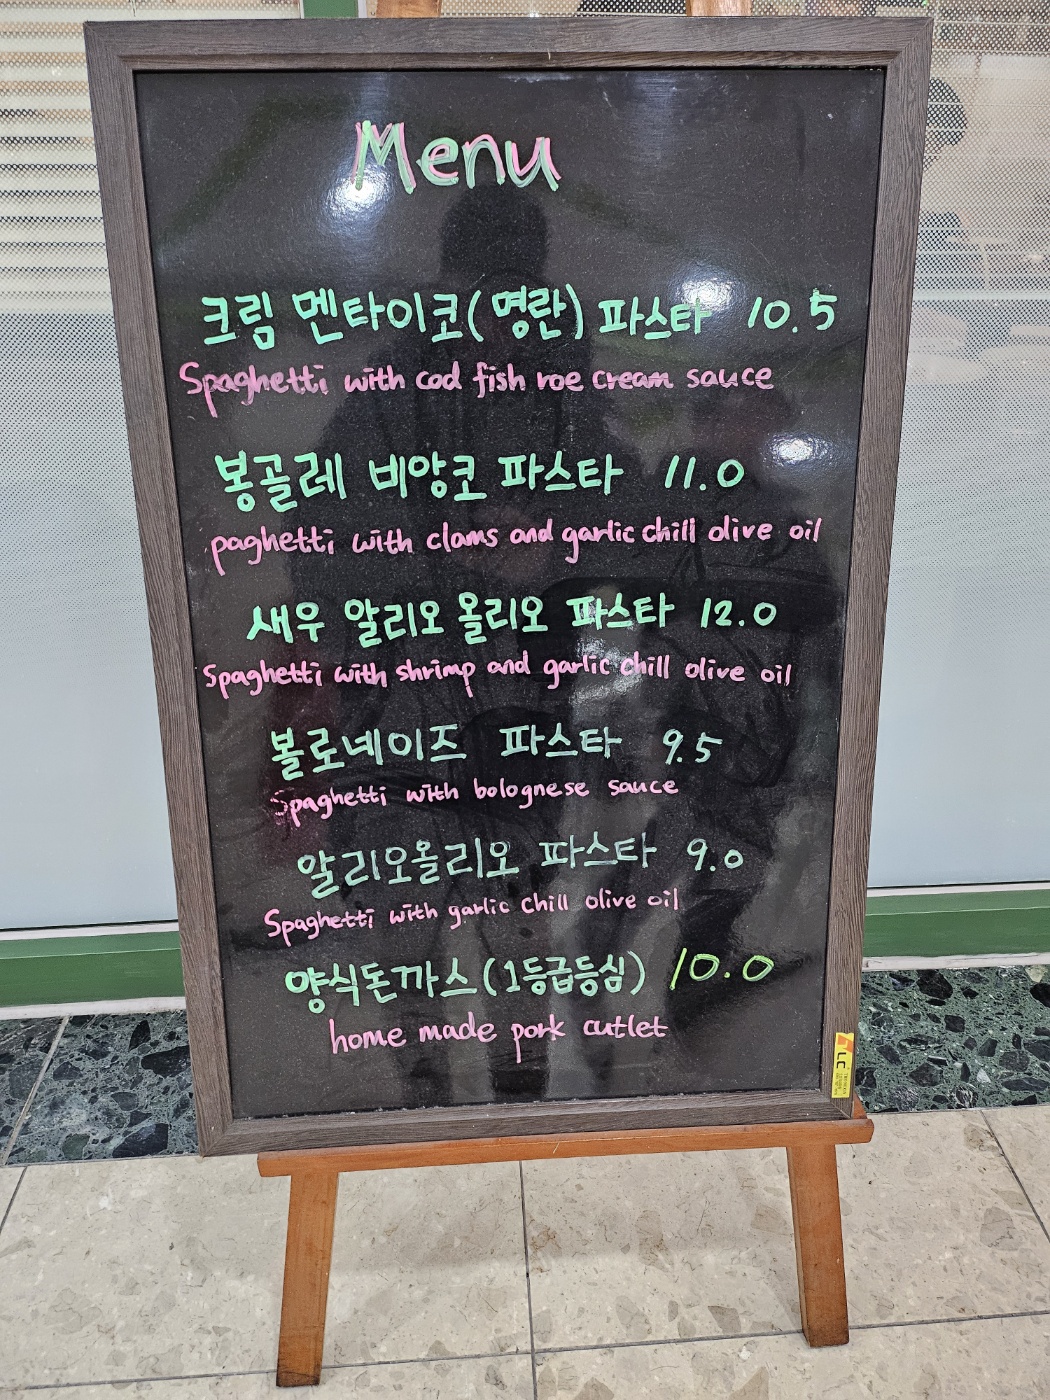 Menu
크림 멘타이코(명란) 파스타 10.5
Spaghetti with cod fish roe cream sauce
봉골레 비앙코 파스타 11.0
paghetti with clams and garlic chill olive oil
새우 알리오 올리오 파스타 12.0
Spaghetti with shrimp and garlic chill olive oil
볼로네이즈 파스타 9.5
Spaghetti with bolognese sauce
알리오올리오 파스타 9.0
Spaghetti with garlic chill olive oil
양식돈까스(1등급등심) 10.0
home made pork cutlet
LC